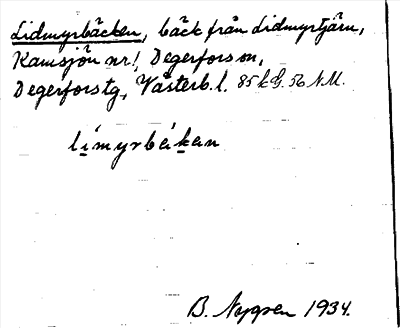 Lidmyrbäcken, bäck från Lidmyrtjärn,
Kamsjön nr 1, Degerfors sn,
Degerfors tg, Västerb. l. 85 k G. 56 N.M.
límyrbäkan
B. Nygren 1934.